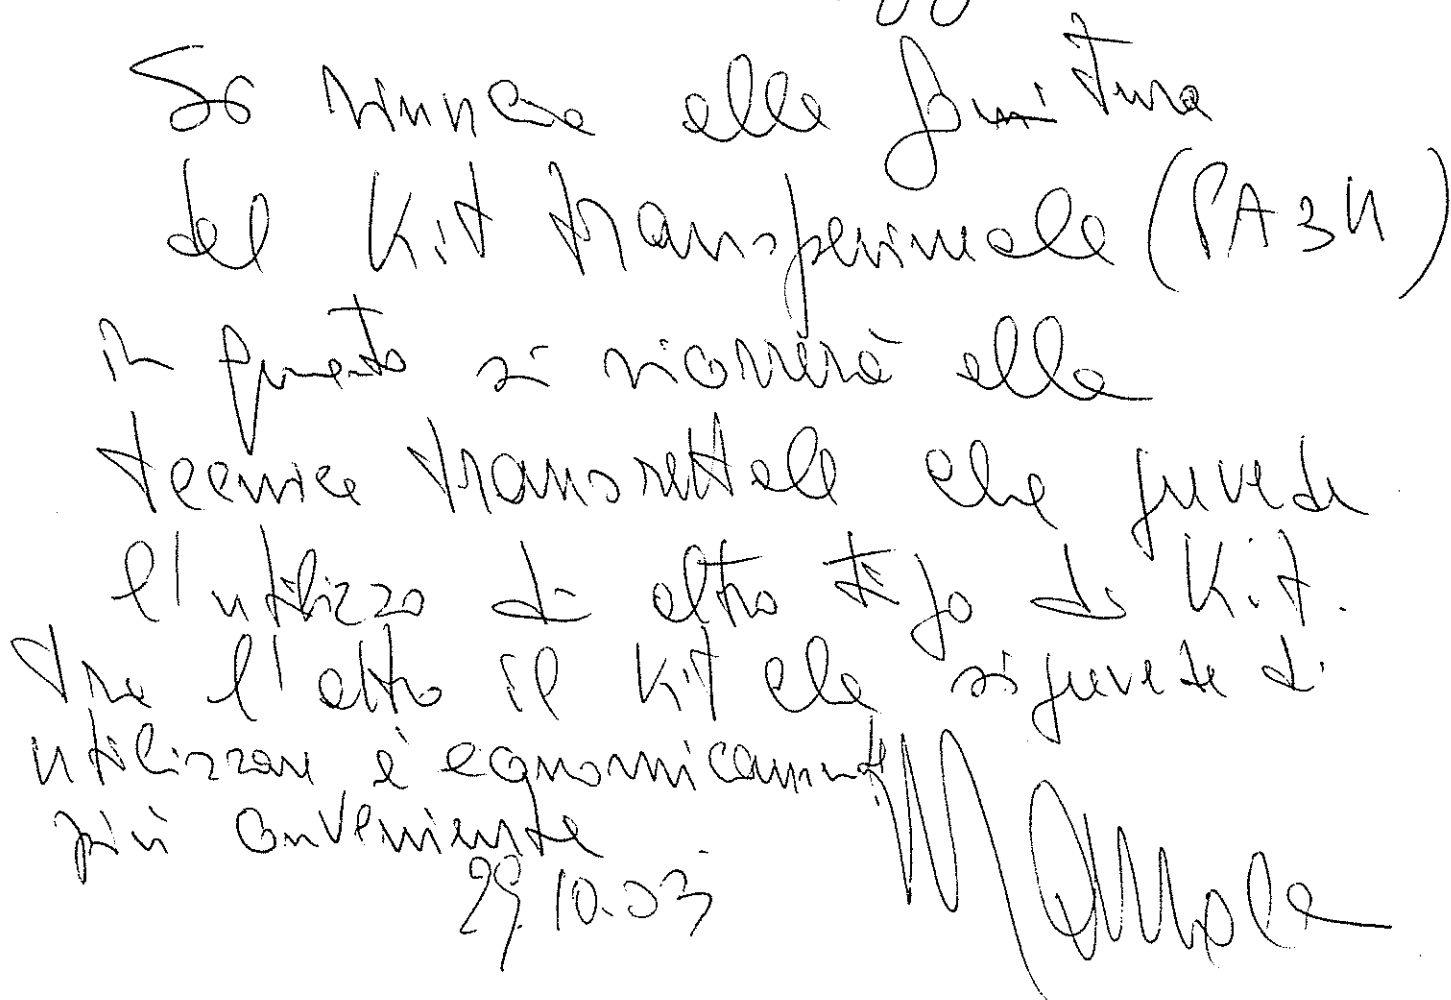 Si rinuncia alla fornitura
del Kit transperineale (PA3U)
in quanto si ricorrerà alla
tecnica transrettale che prevede
l'utilizzo di altro tipo di Kit.
tra l'altro il Kit che si prevede di
utilizzare è economicamente
più conveniente
29.10.03